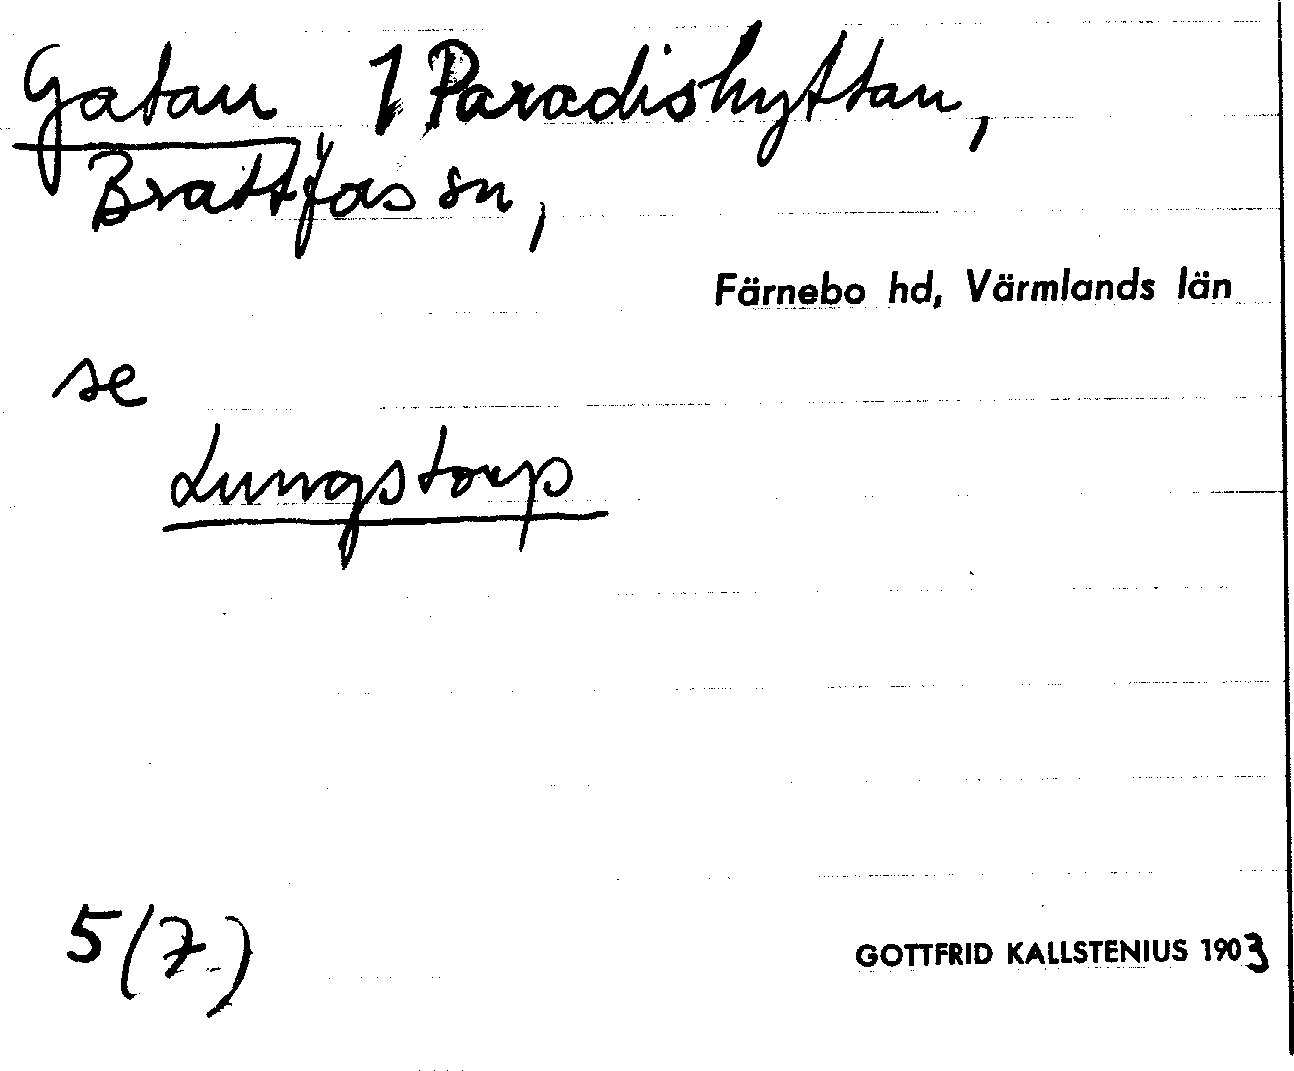 Gatan, 1 Paradishyttan,
Brattfors sn,
Färnebo hd, Värmlands län
se
Lungstorp
5 (7)
GOTTFRID KALLSTENIUS 1903